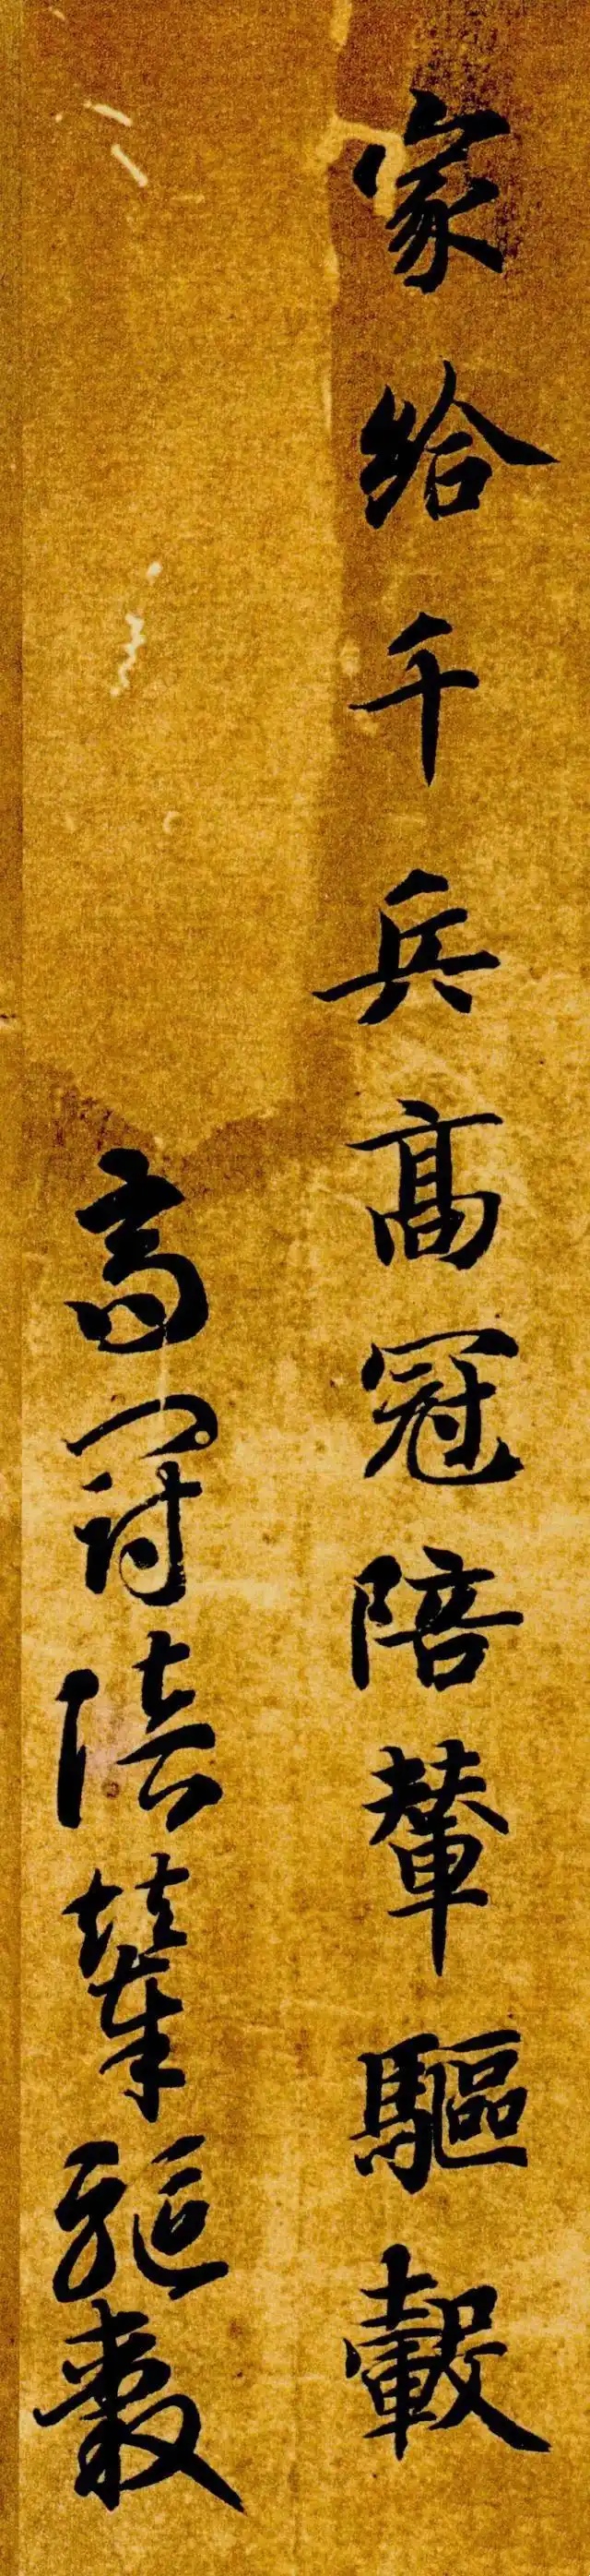 家給千兵高冠陪輦驅轂
高冠陪輦驅轂